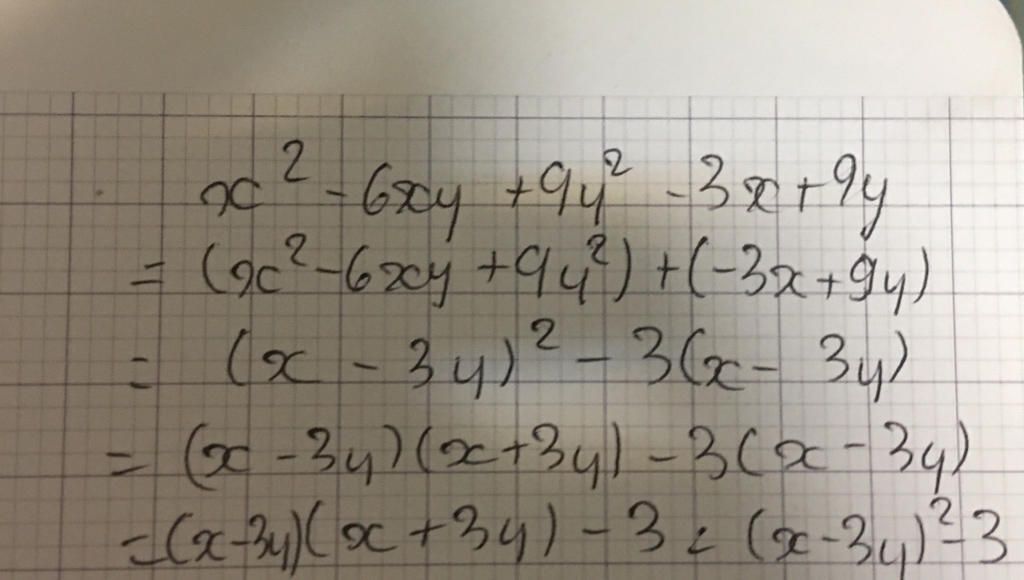 x² - 6xy + 9y² - 3x + 9y
= (x² - 6xy + 9y²) + (-3x + 9y)
= (x - 3y)² - 3(x - 3y)
= (x - 3y)(x + 3y) - 3(x - 3y)
= (x - 3y)(x + 3y) - 3 = (x - 3y)² - 3